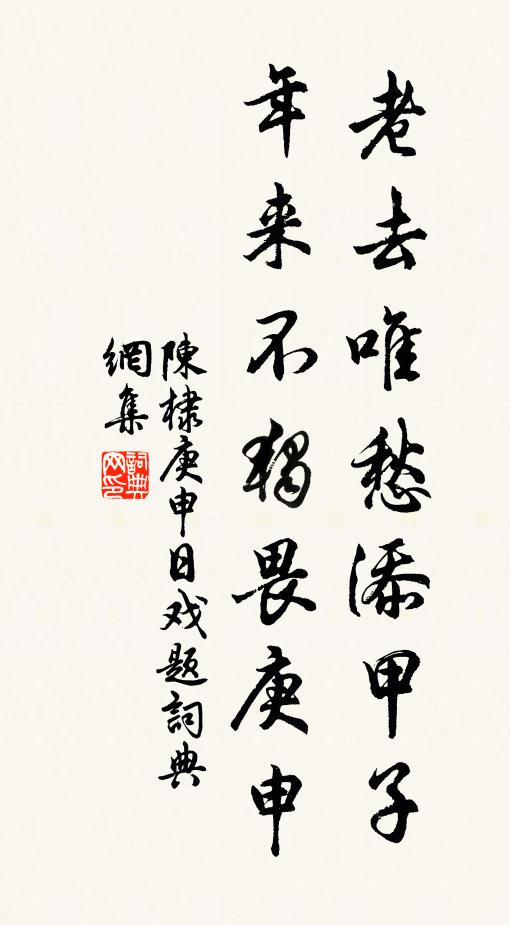 老去唯愁添甲子
年来不獨畏庚申
陳棣庚申日戏題詞典
網集
詞典网印